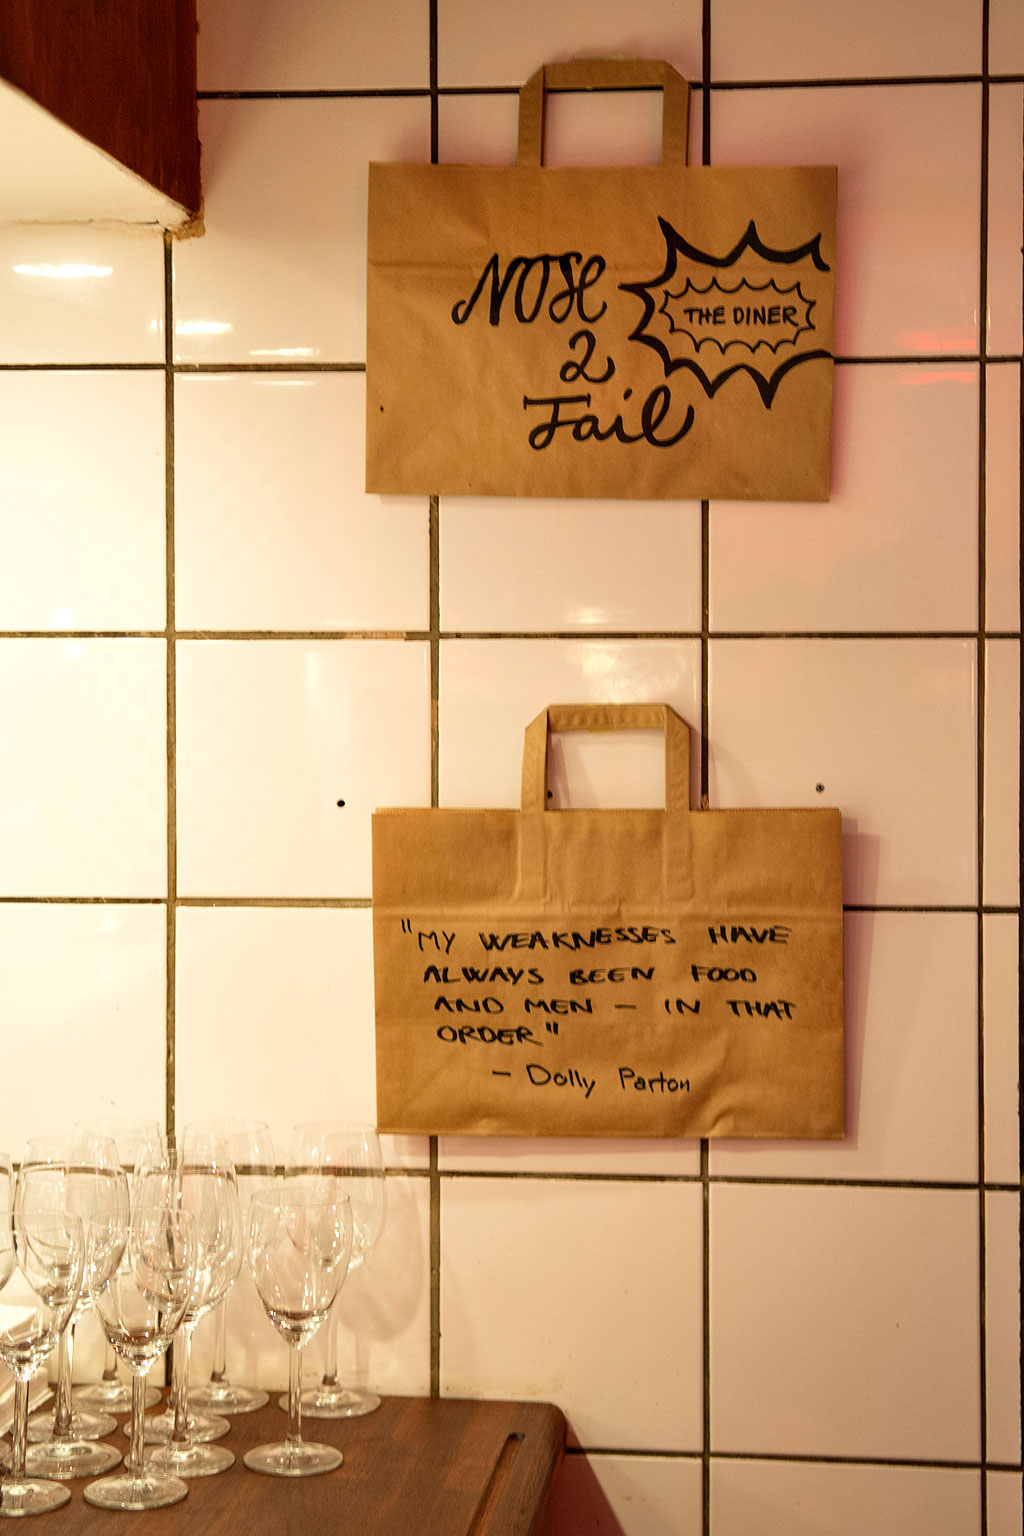 NOSE
2
Tail
THE DINER
"MY WEAKNESSES HAVE
ALWAYS BEEN FOOD
AND MEN – IN THAT
ORDER"
– Dolly Parton